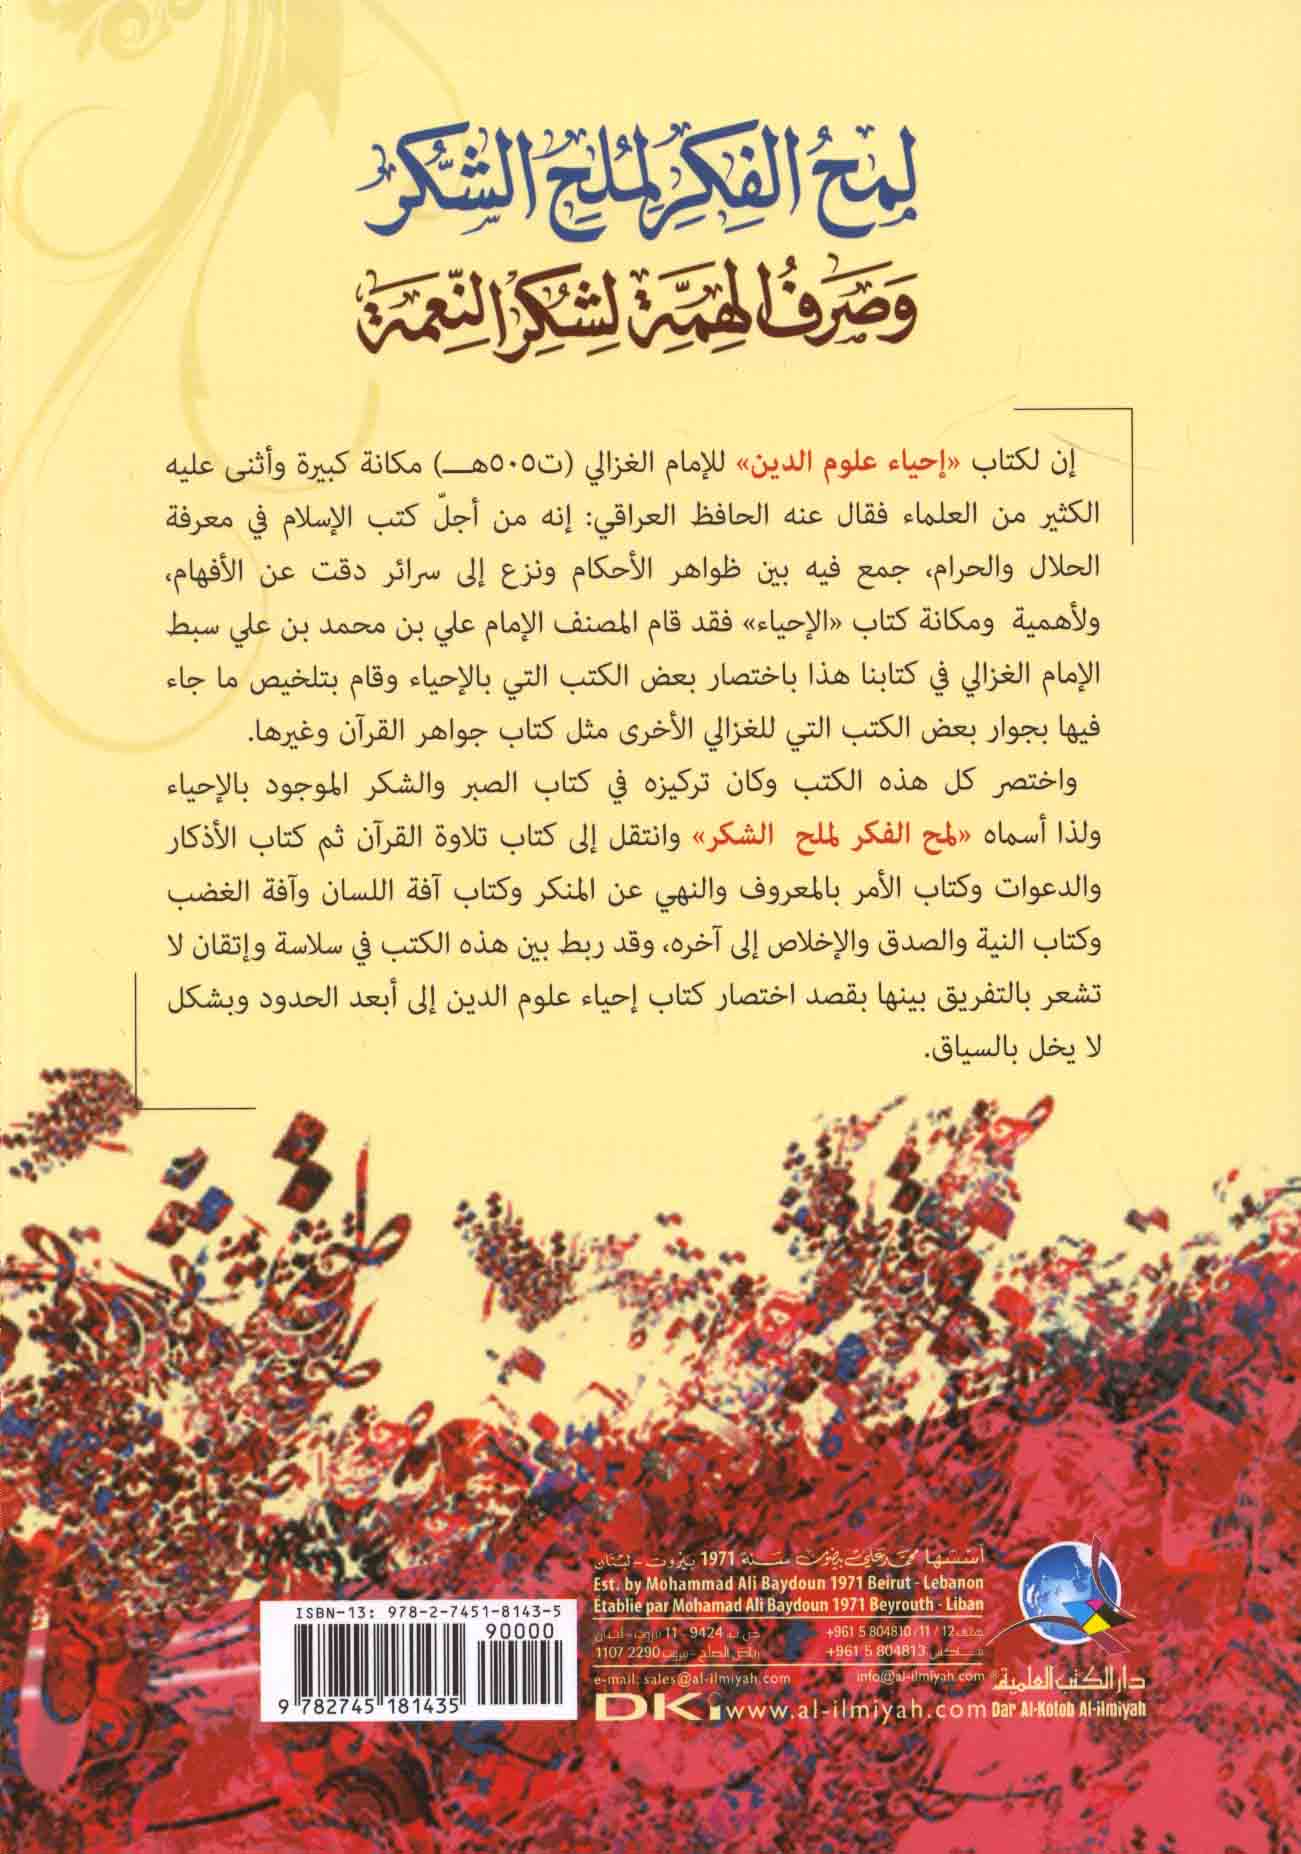 لمحُ الفِكرِ لمُلَحِ الشُّكر
وَصَرفُ الهِمَّةِ لشُكرِ النِّعمَة
إن لكتاب «إحياء علوم الدين» للإمام الغزالي (ت٥٠٥هـ) مكانة كبيرة وأثنى عليه
الكثير من العلماء فقال عنه الحافظ العراقي: إنه من أجلّ كتب الإسلام في معرفة
الحلال والحرام، جمع فيه بين ظواهر الأحكام ونزع إلى سرائر دقت عن الأفهام،
ولأهمية ومكانة كتاب «الإحياء» فقد قام المصنف الإمام علي بن محمد بن علي سبط
الإمام الغزالي في كتابنا هذا باختصار بعض الكتب التي بالإحياء وقام بتلخيص ما جاء
فيها بجوار بعض الكتب التي للغزالي الأخرى مثل كتاب جواهر القرآن وغيرها.
واختصر كل هذه الكتب وكان تركيزه في كتاب الصبر والشكر الموجود بالإحياء
ولذا أسماه «لمح الفكر لملح الشكر» وانتقل إلى كتاب تلاوة القرآن ثم كتاب الأذكار
والدعوات وكتاب الأمر بالمعروف والنهي عن المنكر وكتاب آفة اللسان وآفة الغضب
وكتاب النية والصدق والإخلاص إلى آخره، وقد ربط بين هذه الكتب في سلاسة وإتقان لا
تشعر بالتفريق بينها بقصد اختصار كتاب إحياء علوم الدين إلى أبعد الحدود وبشكل
لا يخل بالسياق.
أسسها محمد علي بيضون سنة 1971 بيروت - لبنان
Est. by Mohammad Ali Baydoun 1971 Beirut - Lebanon
Etablie par Mohamad Ali Baydoun 1971 Beyrouth - Liban
هاتف +961 5 804810 / 11 / 12 ص.ب 9424 - 11 بيروت - لبنان
فاكس +961 5 804813 رياض الصلح - بيروت 2290 1107
e-mail: sales@al-ilmiyah.com info@al-ilmiyah.com
دار الكتب العلمية
DKi www.al-ilmiyah.com Dar Al-Kotob Al-ilmiyah
ISBN-13: 978-2-7451-8143-5
90000
9 782745 181435